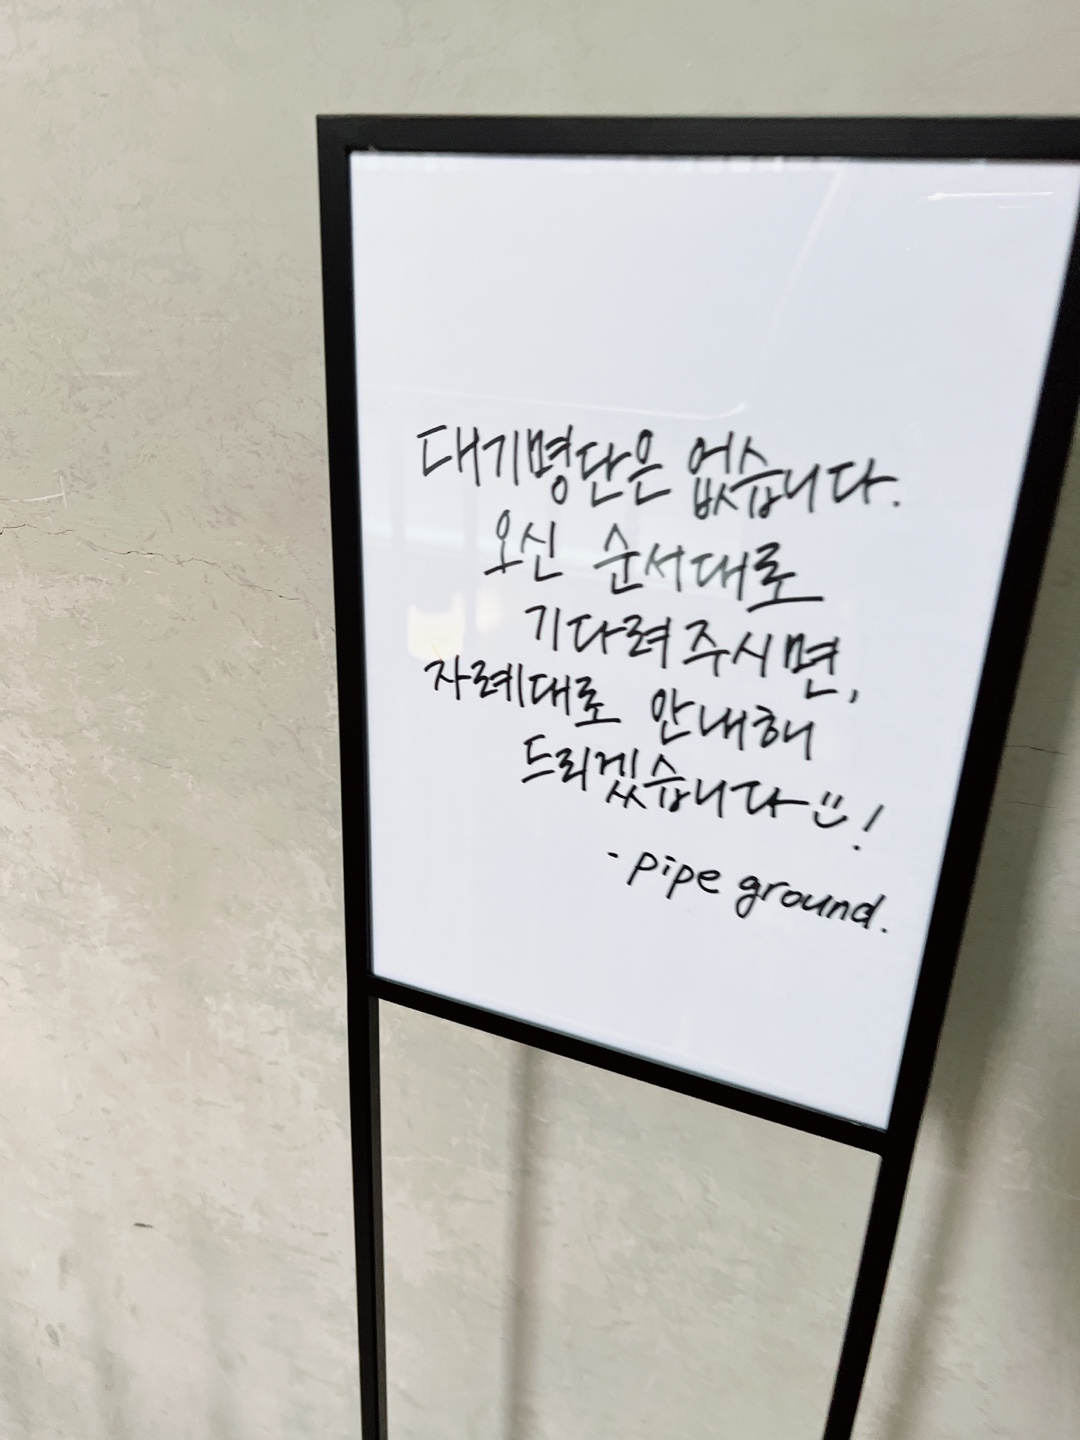 대기명단은 없습니다.
오신 순서대로
기다려 주시면,
차례대로 안내해
드리겠습니다!
- pipe ground.